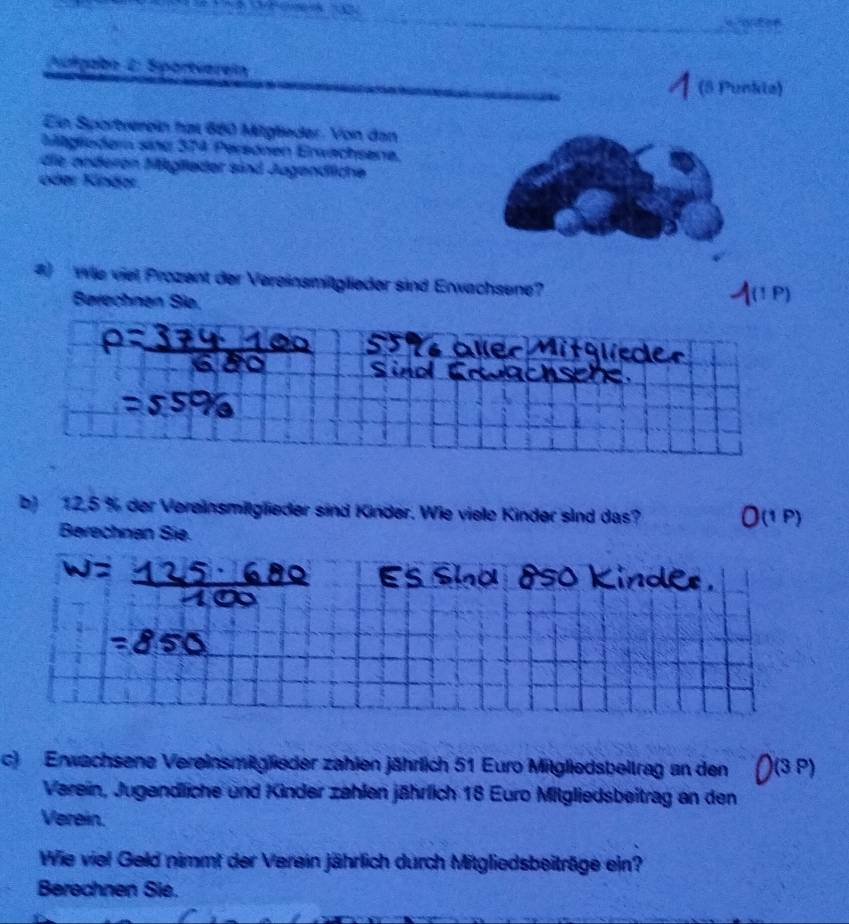 Aufgabe 2: Sportverein
1 (8 Punkte)
Ein Sportverein hat 680 Mitglieder. Von den
Mitgliedern sind 374 Personen Erwachsene,
die anderen Mitglieder sind Jugendliche
oder Kinder.
a) Wie viel Prozent der Vereinsmitglieder sind Erwachsene?
1 (1 P)
Berechnen Sie.
p = 374 · 100 55% aller Mitglieder
680 sind Erwachsene.
= 55%
b) 12,5 % der Vereinsmitglieder sind Kinder. Wie viele Kinder sind das?
0 (1 P)
Berechnen Sie.
W = 125 · 680 Es sind 850 Kinder.
100
= 850
c) Erwachsene Vereinsmitglieder zahlen jährlich 51 Euro Mitgliedsbeitrag an den
0 (3 P)
Verein, Jugendliche und Kinder zahlen jährlich 18 Euro Mitgliedsbeitrag an den
Verein.
Wie viel Geld nimmt der Verein jährlich durch Mitgliedsbeiträge ein?
Berechnen Sie.